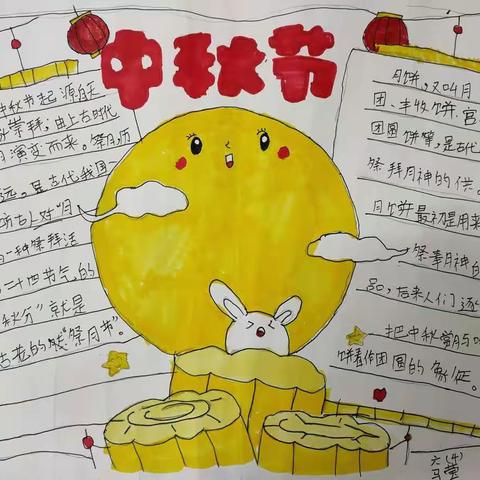 中秋节
中秋节起源自天
崇拜,由上古时代
演变而来。祭月,历
远。是古代我国
古人对"月
一种祭拜活
二十四节气的
秋分"就是
古老的"祭月节"。
月饼,又叫月
团、丰收饼、宫
团圆饼等,是古代
祭拜月神的供
月饼最初是用来
祭奉月神的
品,后来人们逐
把中秋赏月与
饼看作团圆的象征。
六(4)
马莹